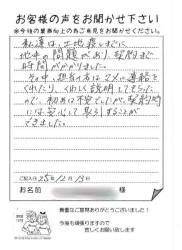 お客様の声をお聞かせ下さい
※今後の業務向上の為ご意見をお聞かせください。
私達は、土地探しをまずに
地中の問題があり、契約まで
時間がかかりました。
その中、担当者はマメに連絡を
くれたり、くわしく説明して下さったの
で、初めは不安でしたが、契約時
には、安心して取引することが
できました。
ご記入日 25年12月13日
お名前 様
貴重なご意見ありがとうございました!
今後も頑張りますので
宜しくお願い致します